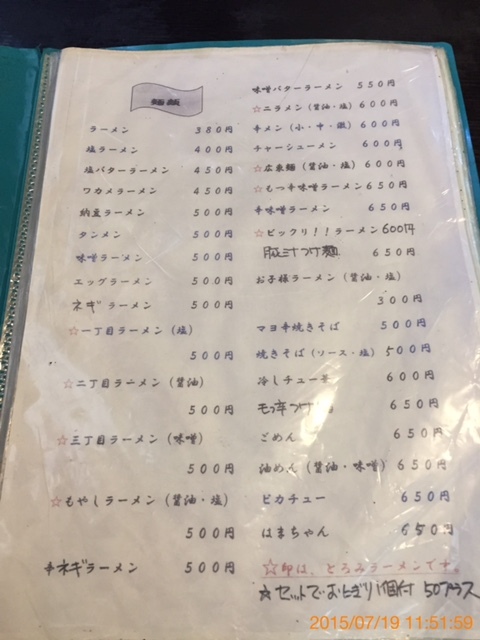 麺類
ラーメン 380円
塩ラーメン 400円
塩バターラーメン 450円
ワカメラーメン 450円
納豆ラーメン 500円
タンメン 500円
味噌ラーメン 500円
エッグラーメン 500円
ネギラーメン 500円
☆一丁目ラーメン(塩)
500円
☆二丁目ラーメン(醤油)
500円
☆三丁目ラーメン(味噌)
500円
☆もやしラーメン(醤油・塩)
500円
辛ネギラーメン 500円
味噌バターラーメン 550円
☆ニラメン(醤油・塩) 600円
辛メン(小・中・激) 600円
チャーシューメン 600円
☆広東麺(醤油・塩) 600円
☆もつ辛味噌ラーメン 650円
辛味噌ラーメン 650円
☆ビックリ!!ラーメン 600円
豚汁つけ麺 650円
お子様ラーメン(醤油・塩)
300円
マヨ辛焼きそば 500円
焼きそば(ソース・塩) 500円
冷しチュー 600円
モツ辛つけ 650円
ごめん 650円
油めん(醤油・味噌) 650円
ピカチュー 650円
はまちゃん 650円
☆印は、とろみラーメンです。
☆セットでおにぎり1個付 50プラス
2015/07/19 11:51:59